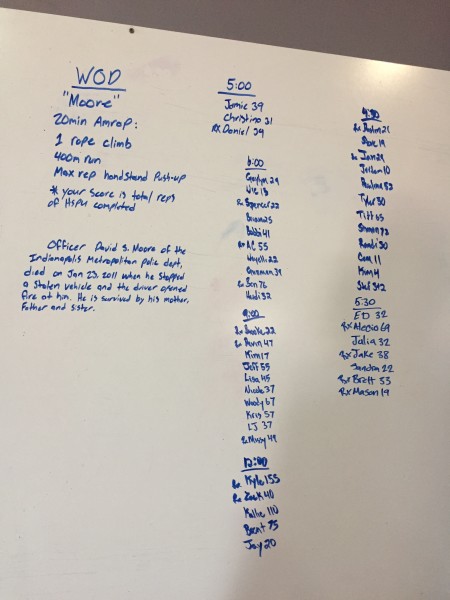 WOD
"Moore"
20min Amrap:
1 rope climb
400m run
Max rep handstand Push-up
* your Score is total reps
of HSPU completed
Officer David S. Moore of the
Indianapolis Metropolitan Police dept.
died on Jan 23, 2011 when he stopped
a Stolen vehicle and the driver opened
fire at him. He is survived by his mother,
Father and Sister.
5:00
Jamie 39
Christina 21
Rx Daniel 29
6:00
Rx Spencer 22
Brian 25
Bobbi 41
Rx AC 55
Rx Ben 76
Heidi 32
9:00
Rx Brooke 22
Rx Devin 47
Kim 17
Jeff 55
Lisa 45
Nicole 37
Woody 67
Kris 57
LJ 37
Rx Missy 49
12:00
Rx Kyle 155
Rx Zack 40
Kallie 110
Brent 75
Jay 20
4:30
Rx
Rx Jan 29
Jordan 10
Pauline 52
Tyler 30
Tift 65
Kim 4
5:30
ED 32
Rx Alecio 69
Julia 32
Rx Jake 38
Sandra 22
Rx Brett 53
Rx Mason 19